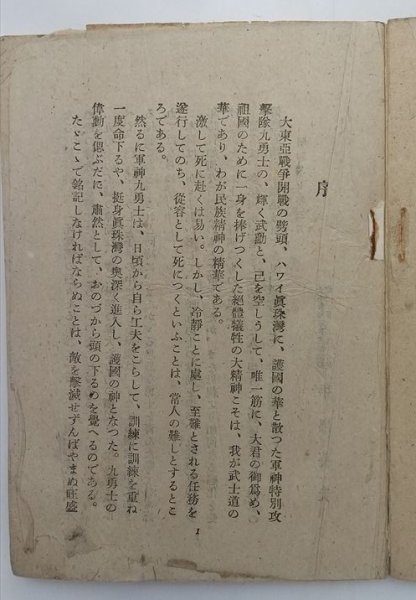 序
大東亞戰爭開戰の劈頭、ハワイ眞珠灣に、護國の華と散つた軍神特別攻
擊隊九勇士の、輝く武勳と、己を空しうして、唯一筋に、大君の御爲め、
祖國のために一身を捧げつくした絕體犧牲の大精神こそは、我が武士道の
華であり、わが民族精神の精華である。
激して死に赴くは易い。しかし、冷靜ことに處し、至難とされる任務を
遂行してのち、從容として死につくといふことは、常人の難しとするとこ
ろである。
然るに軍神九勇士は、日頃から自ら工夫をこらして、訓練に訓練を重ね
一度命下るや、挺身眞珠灣の奧深く進入し、護國の神となつた。九勇士の
偉勳を偲ぶだに、肅然として、おのづから頭の下るのを覺へるのである。
たゞこゝで銘記しなければならぬことは、敵を擊滅せずんばやまぬ旺盛
1